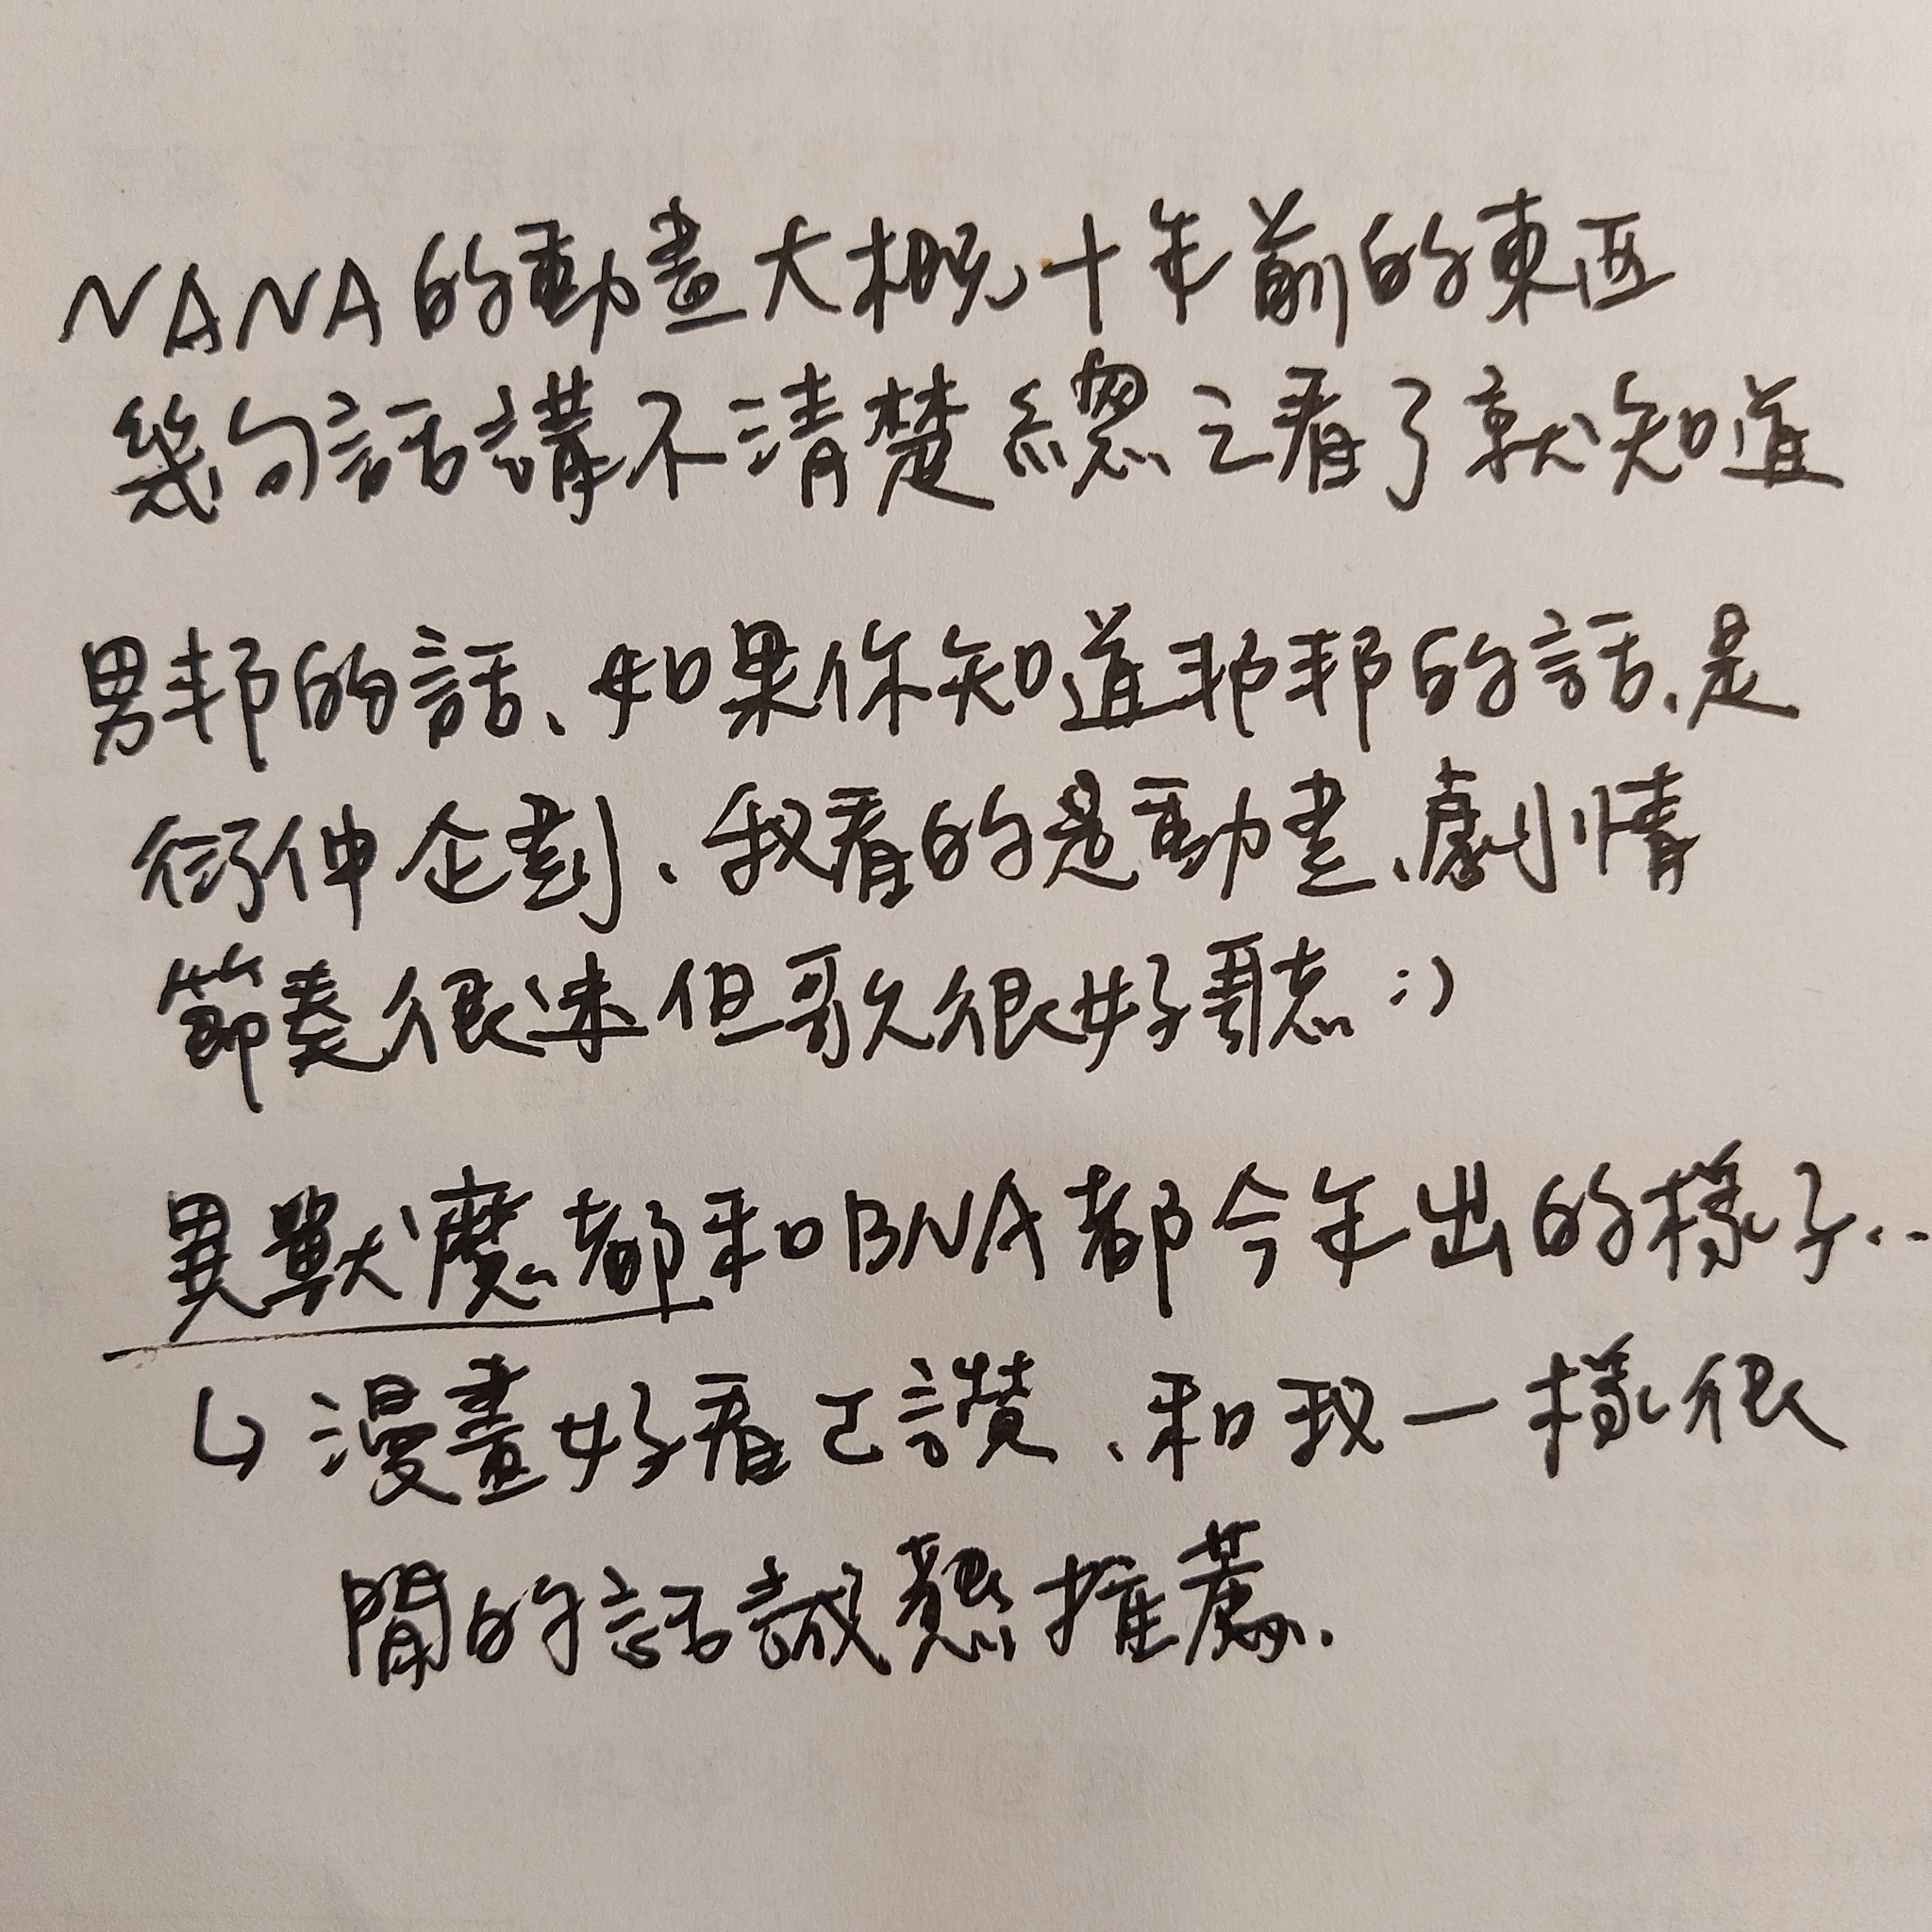 NANA的動畫大概十年前的東西
幾句話講不清楚總之看了就知道
男邦的話、如果你知道邦邦的話、是
衍伸企劃、我看的是動畫、劇情
節奏很迷但歌很好聽:)
異獸魔都和BNA都今年出的樣子..
↳漫畫好看ㄛ讚、和我一樣很
閒的話誠懇推薦.